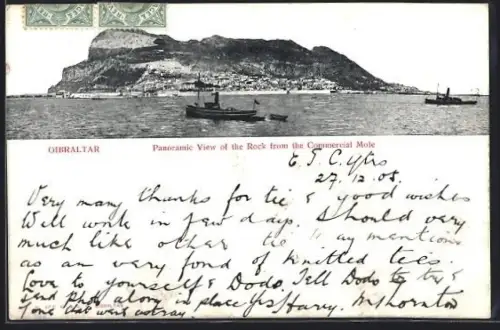 GIBRALTAR
Panoramic View of the Rock from the Commercial Mole
27.12.08.
Very many thanks for tie & good wishes
Will work in few days. Should very
much like other tie mention
as am very fond of knitted ties.
Love to yourself & Dodo. Tell Dodo to try &
send photo along in place of
gone that went astray.